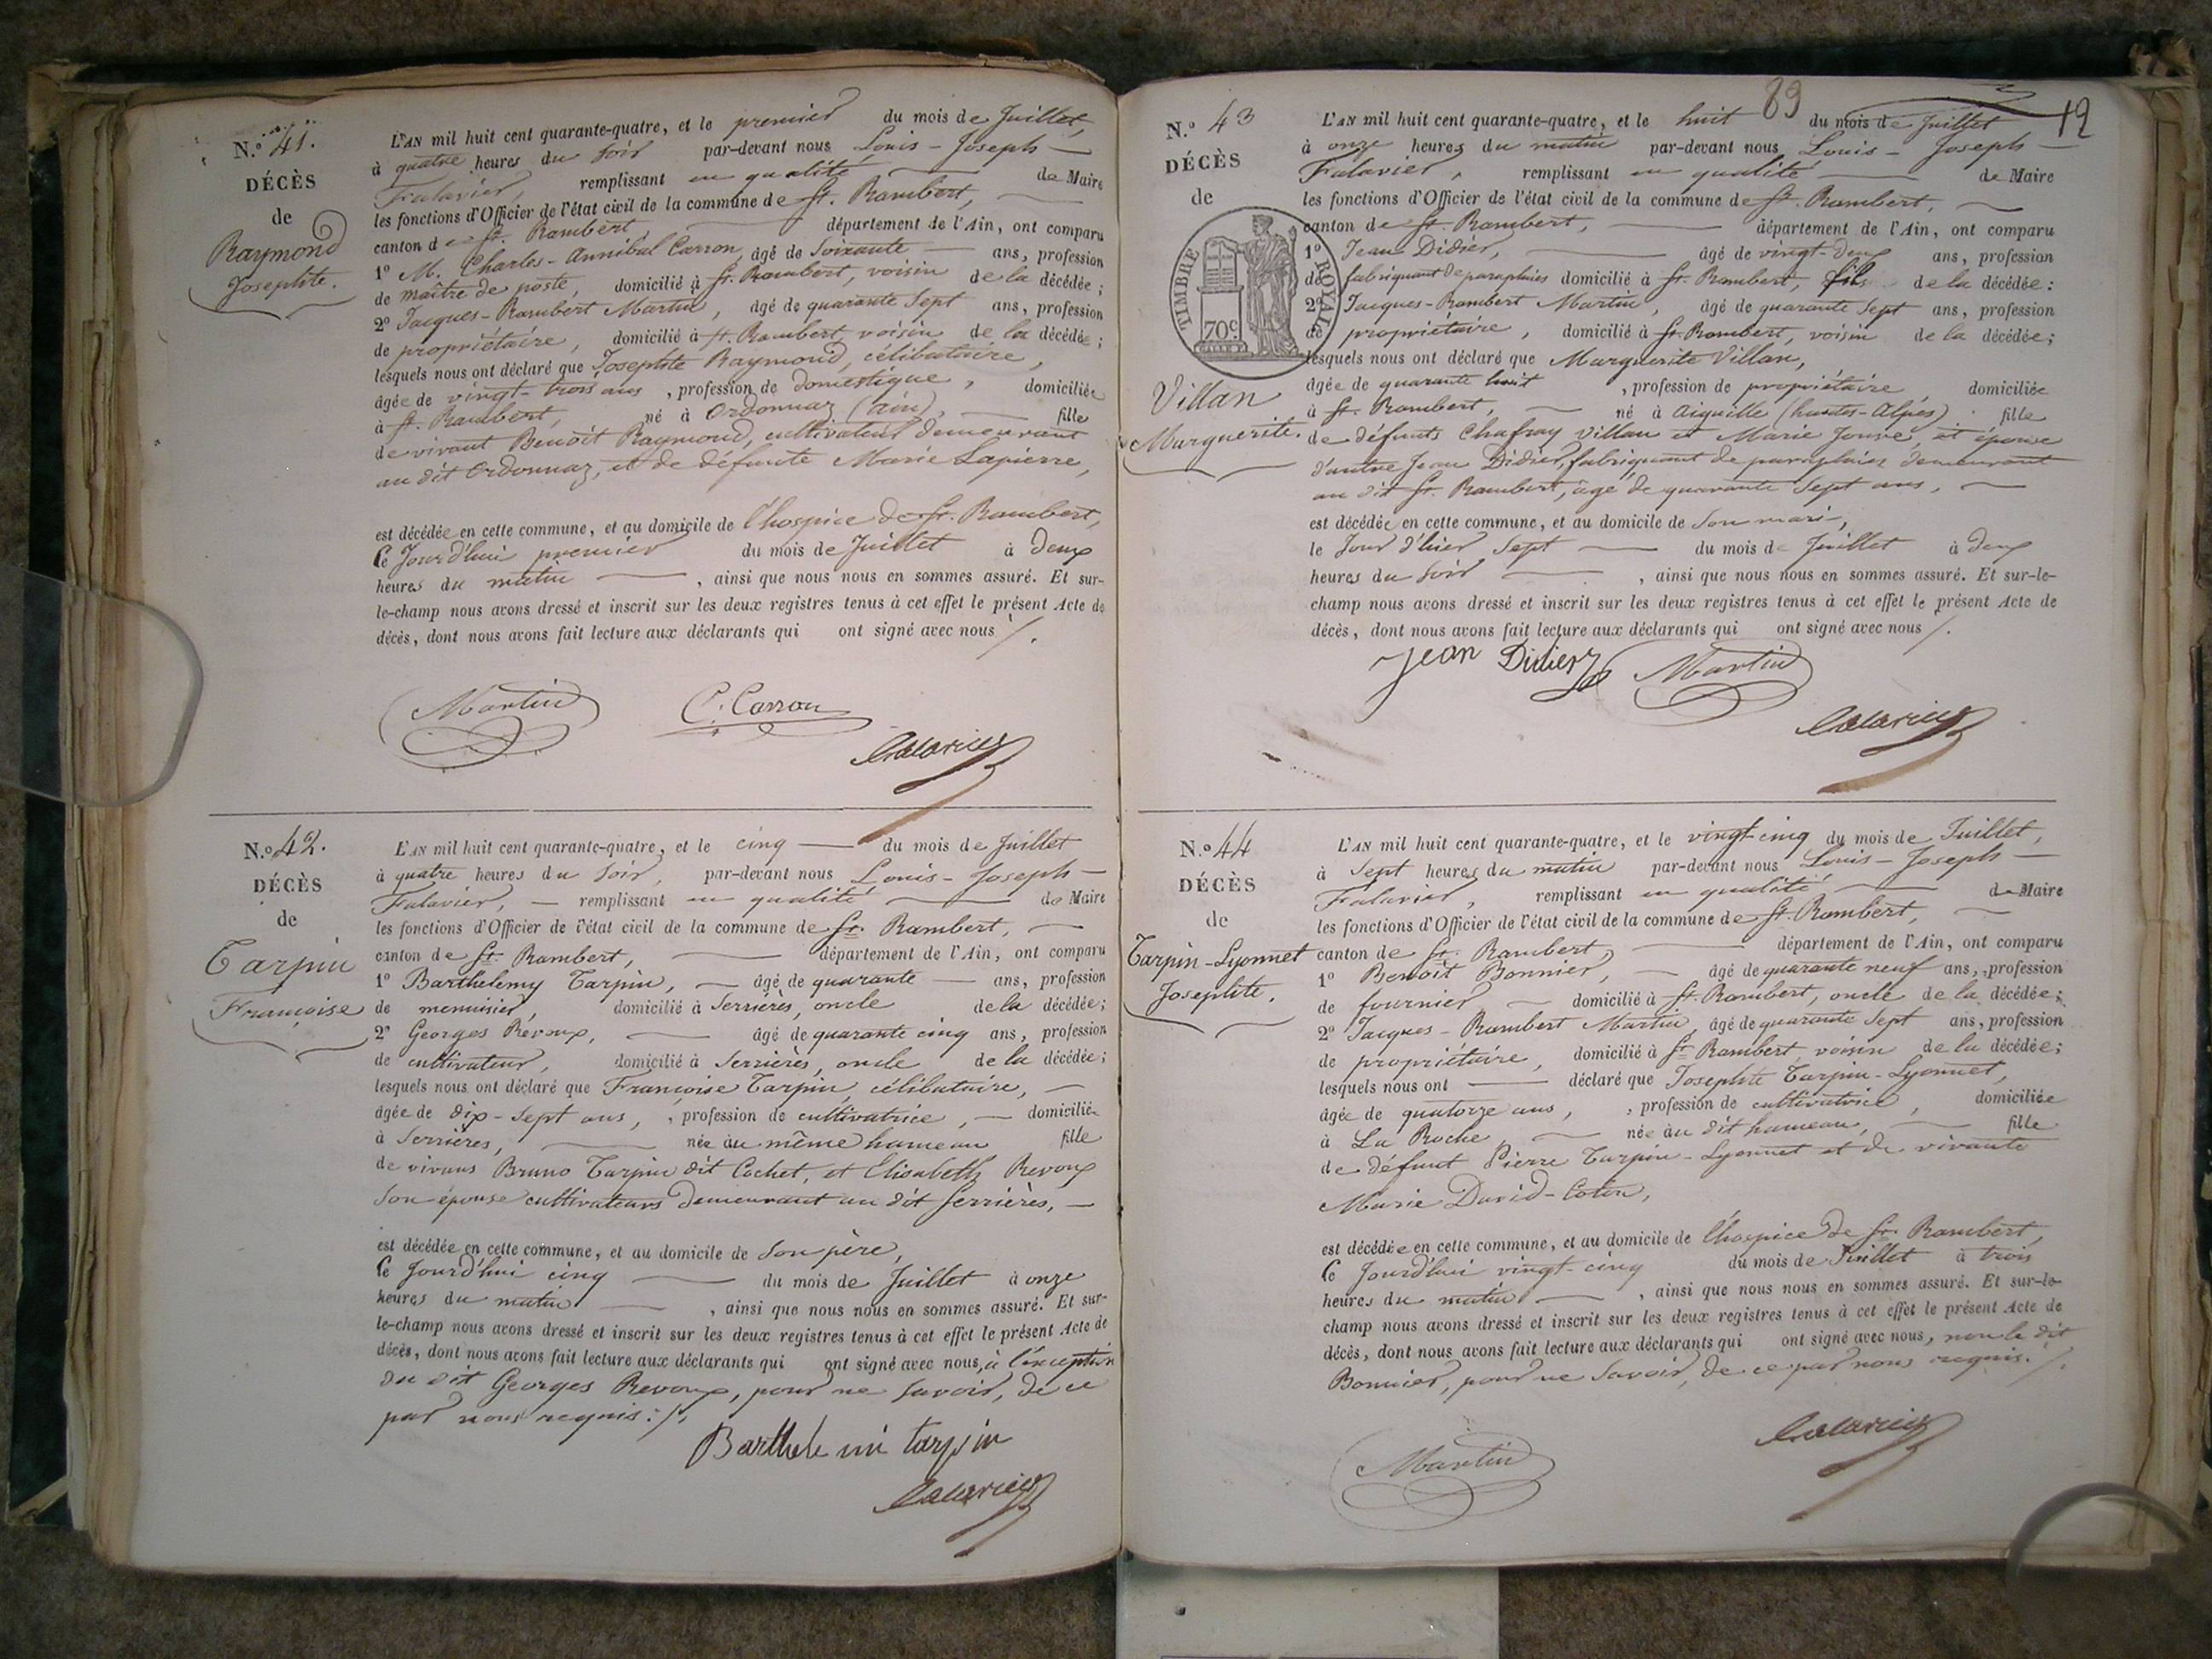 N.º 41.
DÉCÈS
de
Raymond
Josephte.
L'AN mil huit cent quarante-quatre, et le premier du mois de Juillet,
à quatre heures du soir par-devant nous Louis-Joseph
Falavier, remplissant en qualité de Maire
les fonctions d'Officier de l'état civil de la commune de St. Rambert,
canton de St. Rambert, département de l'Ain, ont comparu
1º M. Charles-Annibal Carron, âgé de soixante ans, profession
de maître de poste, domicilié à St. Rambert, voisin de la décédée;
2º Jacques-Rambert Martin, âgé de quarante sept ans, profession
de propriétaire, domicilié à St. Rambert, voisin de la décédée;
lesquels nous ont déclaré que Josephte Raymond, célibataire,
âgée de vingt-trois ans, profession de domestique, domiciliée
à St. Rambert, né à Ordonnaz (ain), fille
de vivant Benoît Raymond, cultivateur demeurant
au dit Ordonnaz, et de défunte Marie Lapierre,
est décédée en cette commune, et au domicile de l'hospice de St. Rambert,
Ce Jourd'hui premier du mois de Juillet à deux
heures du matin, ainsi que nous nous en sommes assuré. Et sur-
le-champ nous avons dressé et inscrit sur les deux registres tenus à cet effet le présent Acte de
décès, dont nous avons fait lecture aux déclarants qui ont signé avec nous /.
Martin C. Carron
Falavier
N.º 42.
DÉCÈS
de
Tarpin
Françoise
L'AN mil huit cent quarante-quatre, et le cinq du mois de Juillet
à quatre heures du soir, par-devant nous Louis-Joseph
Falavier, remplissant en qualité de Maire
les fonctions d'Officier de l'état civil de la commune de St. Rambert,
canton de St. Rambert, département de l'Ain, ont comparu
1º Barthelemy Tarpin, âgé de quarante ans, profession
de menuisier, domicilié à Serrières, oncle de la décédée;
2º Georges Revoux, âgé de quarante cinq ans, profession
de cultivateur, domicilié à Serrières, oncle de la décédée;
lesquels nous ont déclaré que Françoise Tarpin, célibataire,
âgée de dix-sept ans, profession de cultivatrice, domiciliée
à Serrières, née au même hameau fille
de vivans Bruno Tarpin dit Cochet, et Elisabeth Revoux
son épouse cultivateurs demeurant au dit Serrières,
est décédée en cette commune, et au domicile de son père,
Ce Jourd'hui cinq du mois de Juillet à onze
heures du matin, ainsi que nous nous en sommes assuré. Et sur-
le-champ nous avons dressé et inscrit sur les deux registres tenus à cet effet le présent Acte de
décès, dont nous avons fait lecture aux déclarants qui ont signé avec nous, à l'exception
du dit Georges Revoux, pour ne savoir, de ce
par nous requis:/.
Barthele mi tarpin
Falavier
89
12
N.º 43
DÉCÈS
de
TIMBRE ROYAL
70c
Villan
Marguerite.
L'AN mil huit cent quarante-quatre, et le huit du mois de Juillet
à onze heures du matin par-devant nous Louis-Joseph
Falavier, remplissant en qualité de Maire
les fonctions d'Officier de l'état civil de la commune de St. Rambert,
canton de St. Rambert, département de l'Ain, ont comparu
1º Jean Didier, âgé de vingt-deux ans, profession
de fabriquant de parapluies domicilié à St. Rambert, fils de la décédée:
2º Jacques-Rambert Martin, âgé de quarante sept ans, profession
de propriétaire, domicilié à St. Rambert, voisin de la décédée;
lesquels nous ont déclaré que Marguerite Villan,
âgée de quarante huit, profession de propriétaire domiciliée
à St. Rambert, né à Aiguille (hautes-Alpes) fille
de défunts Chafray Villan et Marie Jouve, et épouse
d'autre Jean Didier, fabriquant de parapluies demeurant
au dit St. Rambert, âgé de quarante sept ans,
est décédée en cette commune, et au domicile de son mari,
le Jour d'hier sept du mois de Juillet à deux
heures du soir, ainsi que nous nous en sommes assuré. Et sur-le-
champ nous avons dressé et inscrit sur les deux registres tenus à cet effet le présent Acte de
décès, dont nous avons fait lecture aux déclarants qui ont signé avec nous /.
Jean Didier Martin
Falavier
N.º 44
DÉCÈS
de
Tarpin-Lyonnet
Josephte.
L'AN mil huit cent quarante-quatre, et le vingt-cinq du mois de Juillet,
à sept heures du matin par-devant nous Louis-Joseph
Falavier, remplissant en qualité de Maire
les fonctions d'Officier de l'état civil de la commune de St. Rambert,
canton de St. Rambert, département de l'Ain, ont comparu
1º Benoît Bonnier, âgé de quarante neuf ans, profession
de fournier domicilié à St. Rambert, oncle de la décédée;
2º Jacques-Rambert Martin, âgé de quarante sept ans, profession
de propriétaire, domicilié à St. Rambert, voisin de la décédée;
lesquels nous ont déclaré que Josephte Tarpin-Lyonnet,
âgée de quatorze ans, profession de cultivatrice, domiciliée
à La Roche, née au dit hameau, fille
de défunt Pierre Tarpin-Lyonnet et de vivante
Marie David-Cotin,
est décédée en cette commune, et au domicile de l'hospice de St. Rambert,
Ce Jourd'hui vingt-cinq du mois de Juillet à trois
heures du matin, ainsi que nous nous en sommes assuré. Et sur-le-
champ nous avons dressé et inscrit sur les deux registres tenus à cet effet le présent Acte de
décès, dont nous avons fait lecture aux déclarants qui ont signé avec nous, non le dit
Bonnier, pour ne savoir, de ce par nous requis./.
Martin
Falavier